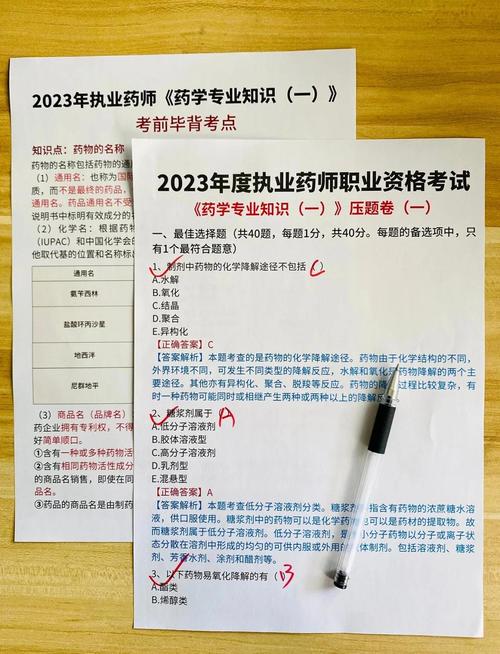 2023年执业药师《药学专业知识（一）》
考前毕背考点
知识点：药物的名称
药物的名称包括药物的通
（1）通用名：也称为国际
质，而不是最终的药品，
通用名。药品通用名不受
说明书中标明有效成分的
（2）化学名：根据药物
（IUPAC）和中国化学会的
他取代基的位置和名称标出
通用名
氨苄西林
盐酸环丙沙星
地西泮
尼群地平
（3）商品名（品牌名）：
药企业拥有专利权，不得
好简单顺口。
①含有一种或多种药物活
②含有相同药物活性成分
的商品名销售，即使在同
品名。
③药品的商品名是由制药
2023年度执业药师职业资格考试
《药学专业知识（一）》压题卷（一）
一、最佳选择题（共40题，每题1分，共40分。每题的备选项中，只
有1个最符合题意）
1、制剂中药物的化学降解途径不包括（C）
A.水解
B.氧化
C.结晶
D.聚合
E.异构化
【正确答案】C
【答案解析】本题考查的是药物的化学降解途径。药物由于化学结构的不同，
外界环境不同，可发生不同类型的降解反应，水解和氧化是药物降解的两个主
要途径。其他亦有异构化、聚合、脱羧等反应。药物的降 过程比较复杂，有
时一种药物可能同时或相继产生两种或两种以上的降解反
2、糖浆剂属于 A
A.低分子溶液剂
B.胶体溶液型
C.高分子溶液剂
D.乳剂型
E.混悬型
【正确答案】A
【答案解析】本题考查低分子溶液剂分类。糖浆剂 指含有药物的浓蔗糖水溶
液，供口服使用。糖浆剂中的药物可以是化学药物 也可以是药材的提取物。故
而糖浆剂属于低分子溶液剂。低分子溶液剂，是 小分子药物以分子或离子状
态分散在溶剂中形成的均匀的可供内服或外用的 体制剂。包括溶液剂、糖浆
剂、芳香水剂、涂剂和醑剂等。
3、以下药物易氧化降解的有（B
A.酯类
B.烯醇类